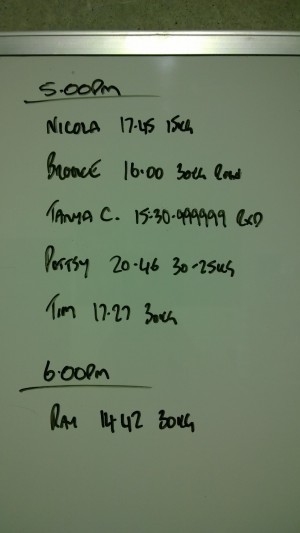 5.00PM
NICOLA 17.45 15KG
BROOKE 16.00 30KG
TANYA C. 15-30-999999 RXD
POTTSY 20-46 30-25KG
TIM 17.27 30KG
6.00PM
RAY 14.42 30KG